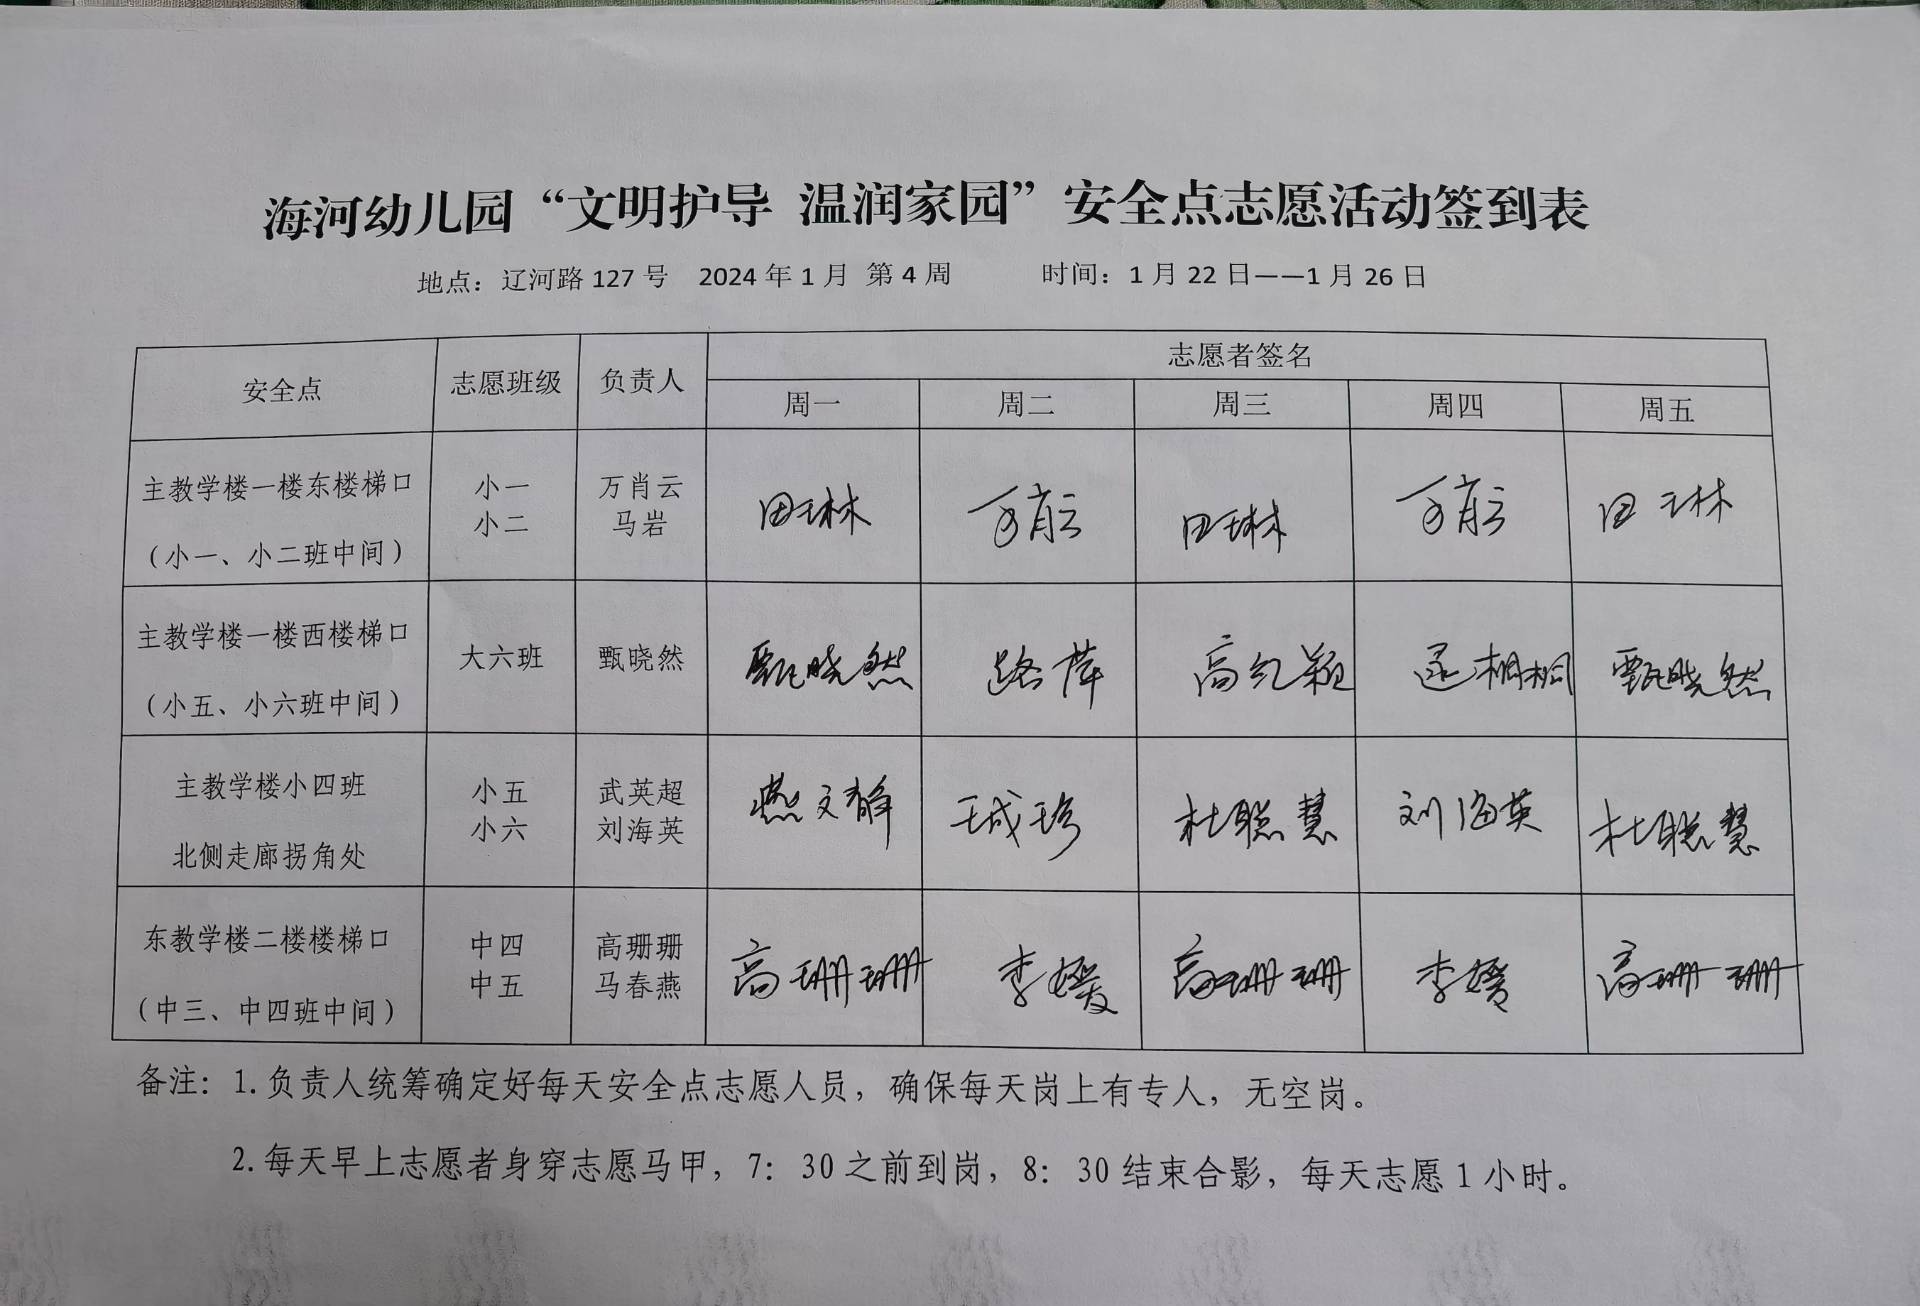 海河幼儿园“文明护导 温润家园”安全点志愿活动签到表
地点：辽河路 127 号 2024 年 1 月 第 4 周 时间：1 月 22 日——1 月 26 日
安全点 志愿班级 负责人 志愿者签名
周一 周二 周三 周四 周五
主教学楼一楼东楼梯口
（小一、小二班中间）
小一
小二
万肖云
马岩
田琳 万肖云 田琳 万肖云 田琳
主教学楼一楼西楼梯口
（小五、小六班中间）
大六班
甄晓然
甄晓然 路萍 高红颖 桐桐 甄晓然
主教学楼小四班
北侧走廊拐角处
小五
小六
武英超
刘海英
燕文静 杜聪慧 刘海英 杜聪慧
东教学楼二楼楼梯口
（中三、中四班中间）
中四
中五
高珊珊
马春燕
高珊珊 李媛 高珊珊 李媛 高珊珊
备注：1.负责人统筹确定好每天安全点志愿人员，确保每天岗上有专人，无空岗。
2.每天早上志愿者身穿志愿马甲，7：30 之前到岗，8：30 结束合影，每天志愿 1 小时。